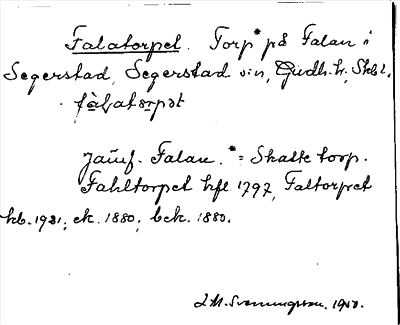 Falatorpet. Torp* på Falan i
Segerstad, Segerstad sn, Gudh. hd, Skbl.
fàlatårpət
Jämf. Falan. *= Skatte torp.
Fahltorpet hfl 1797, Faltorpet
kb. 1921; ek. 1880, bek. 1880.